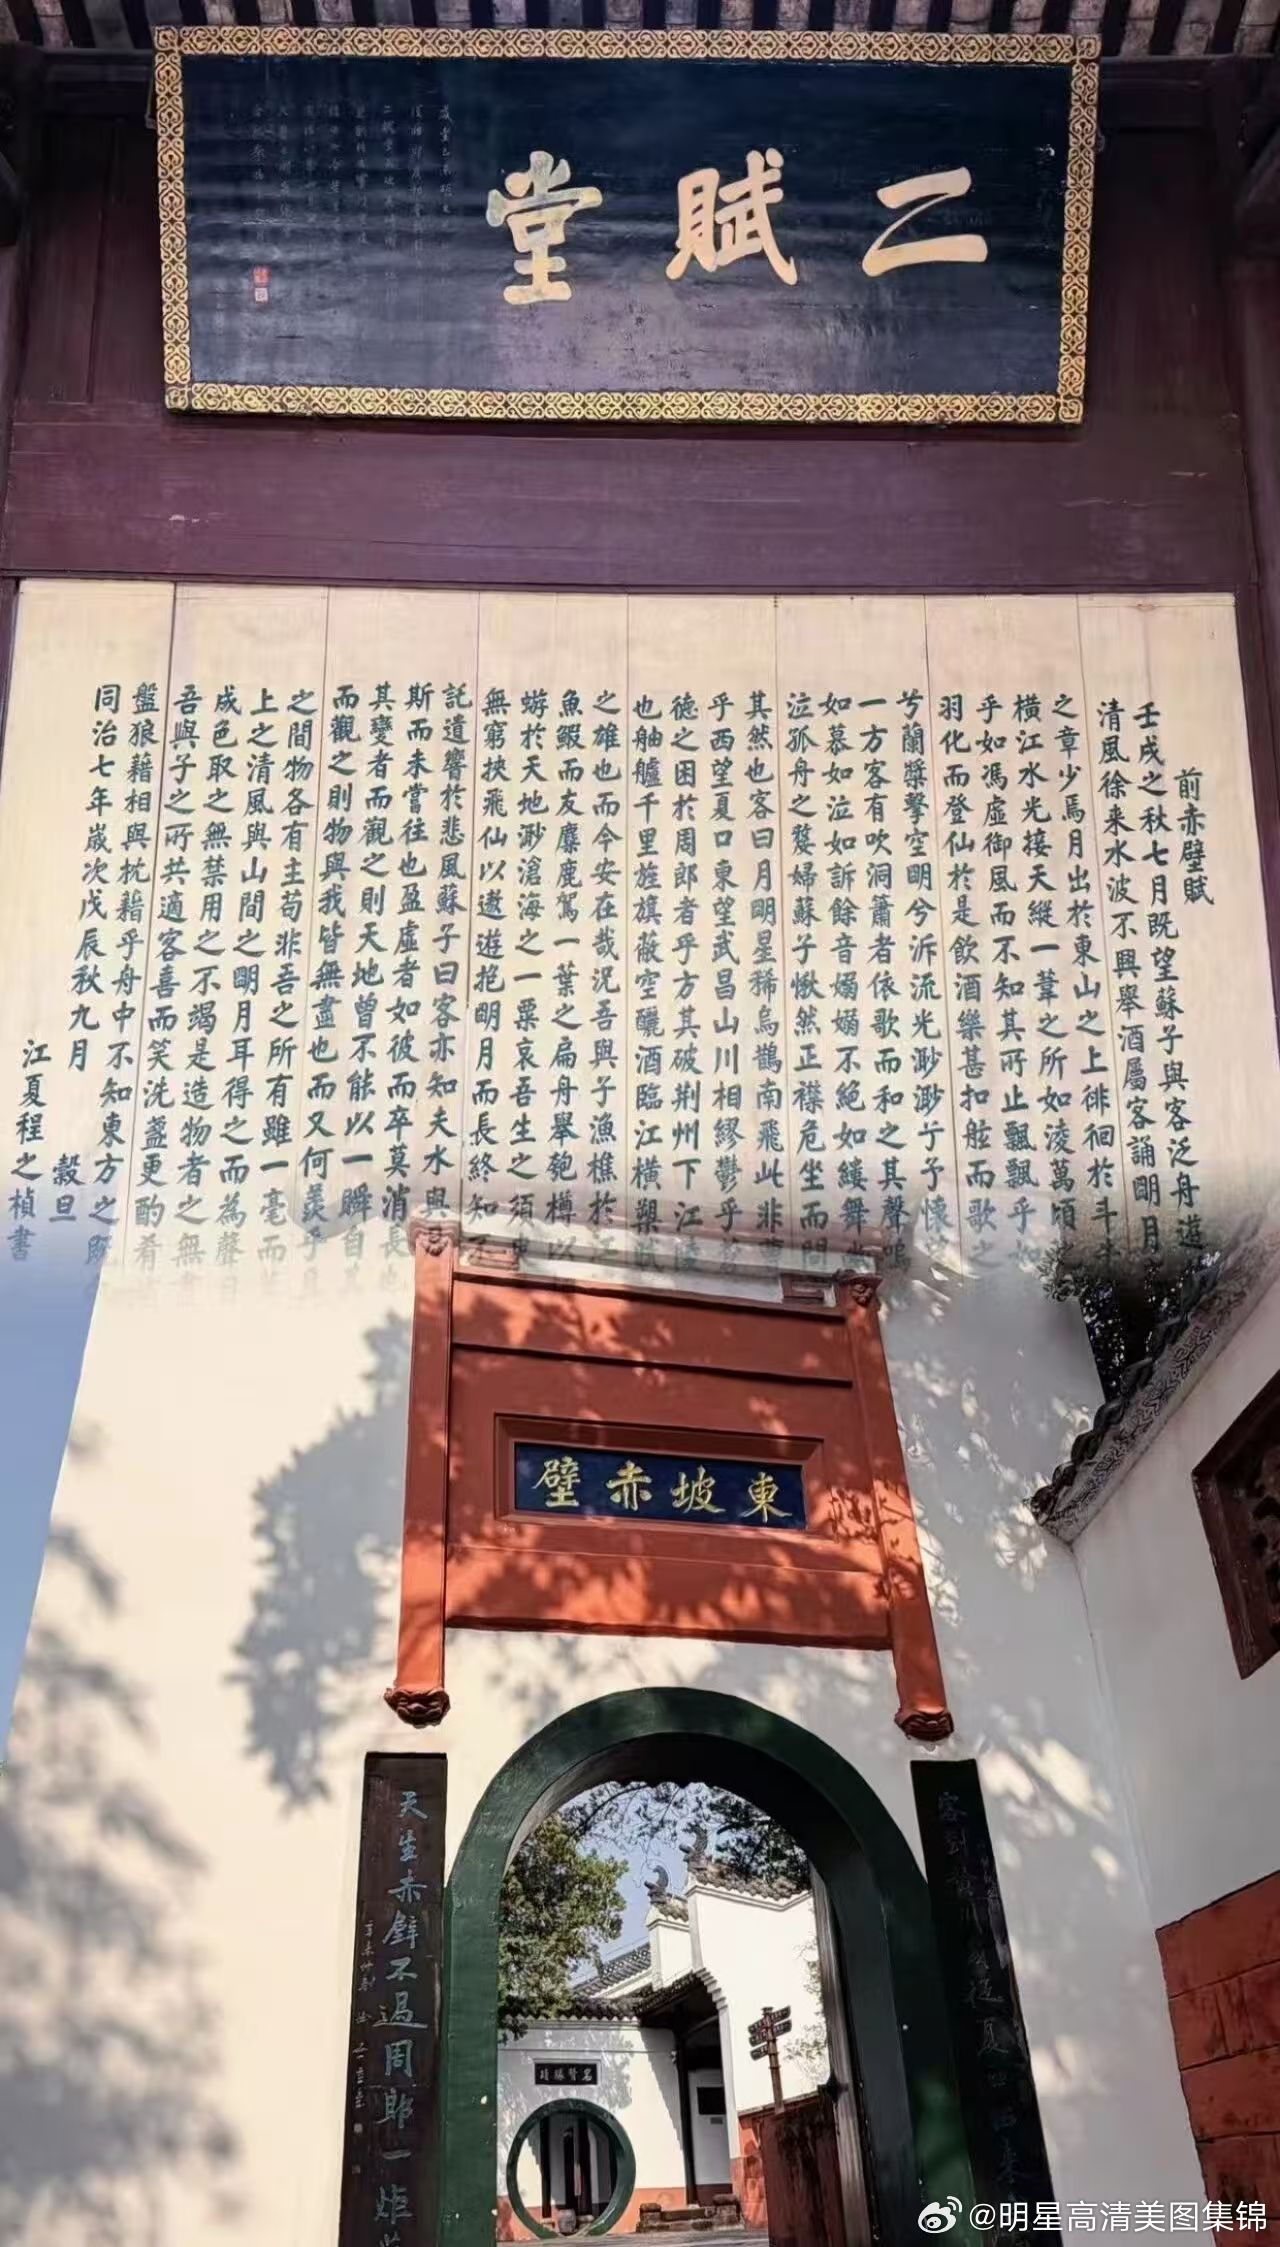 二賦堂
前赤壁賦
壬戌之秋七月既望蘇子與客泛舟遊
清風徐来水波不興舉酒屬客誦朙月
之章少焉月出於東山之上徘徊於斗
橫江水光接天縱一葦之所如淩萬頃
乎如馮虛御風而不知其所止飄飄乎如
羽化而登仙於是飲酒樂甚扣舷而歌之
兮蘭槳擊空明兮泝流光渺渺兮予懷
一方客有吹洞簫者依歌而和之其聲嗚
如慕如泣如訴餘音嫋嫋不絕如縷舞
泣孤舟之嫠婦蘇子愀然正襟危坐而問
其然也客曰月明星稀烏鵲南飛此非曹
乎西望夏口東望武昌山川相繆鬱乎
德之困於周郎者乎方其破荆州下江陵
也舳艫千里旌旗蔽空釃酒臨江橫槊賦
之雄也而今安在哉況吾與子漁樵於江
魚鰕而友麋鹿駕一葉之扁舟舉匏樽以
蜉於天地渺滄海之一粟哀吾生之須臾
無窮挾飛仙以遨遊抱朙月而長終知不
託遺響於悲風蘇子曰客亦知夫水與月
斯而未嘗往也盈虛者如彼而卒莫消長
其變者而觀之則天地曾不能以一瞬自
而觀之則物與我皆無盡也而又何羨乎
之間物各有主苟非吾之所有雖一毫而
上之清風與山間之朙月耳得之而為聲
成色取之無禁用之不竭是造物者之無
吾與子之所共適客喜而笑洗盞更酌肴
盤狼藉相與枕藉乎舟中不知東方之既
同治七年歲次戊辰秋九月
穀旦
江夏程之楨書
東坡赤壁
天生赤壁不過周郎一炬
名賢勝蹟
@明星高清美图集锦